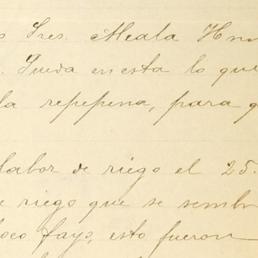 s Sres. Alcala Hno
. Queda en esta lo que
la repepena, para q
labor de riego el 25.
e riego que se sembr
oco fayo, esto fueron